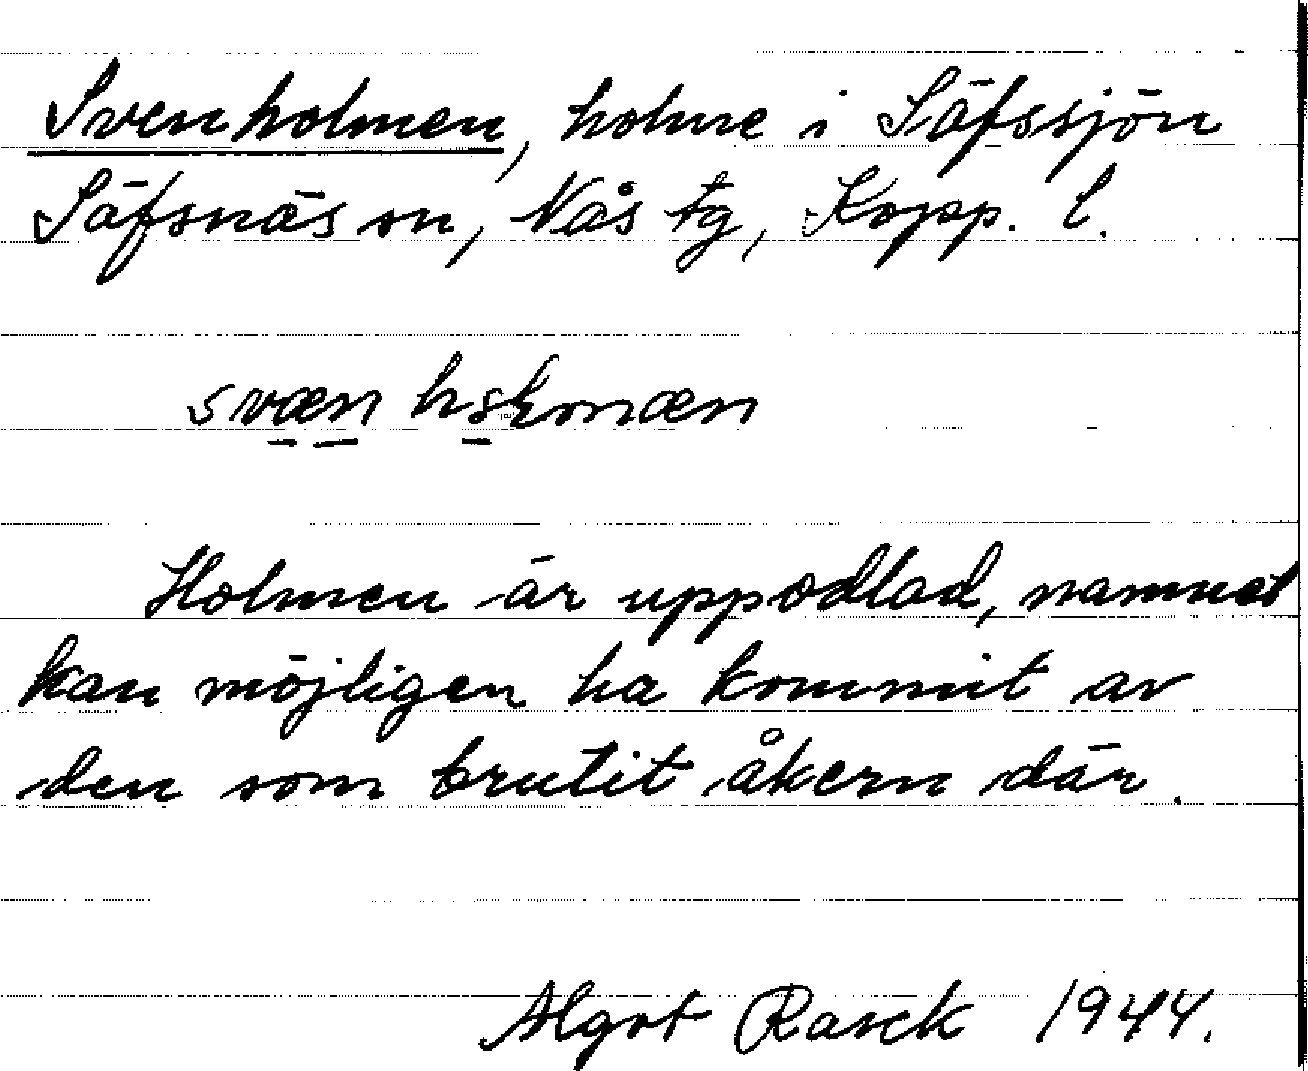 Svenholmen, holme i Säfssjön
Säfsnäs sn, Nås tg, Kopp. l.
svæn
Holmen är uppodlad, namnet
kan möjligen ha kommit av
den som brutit åkern där.
Algot Rasck 1944.